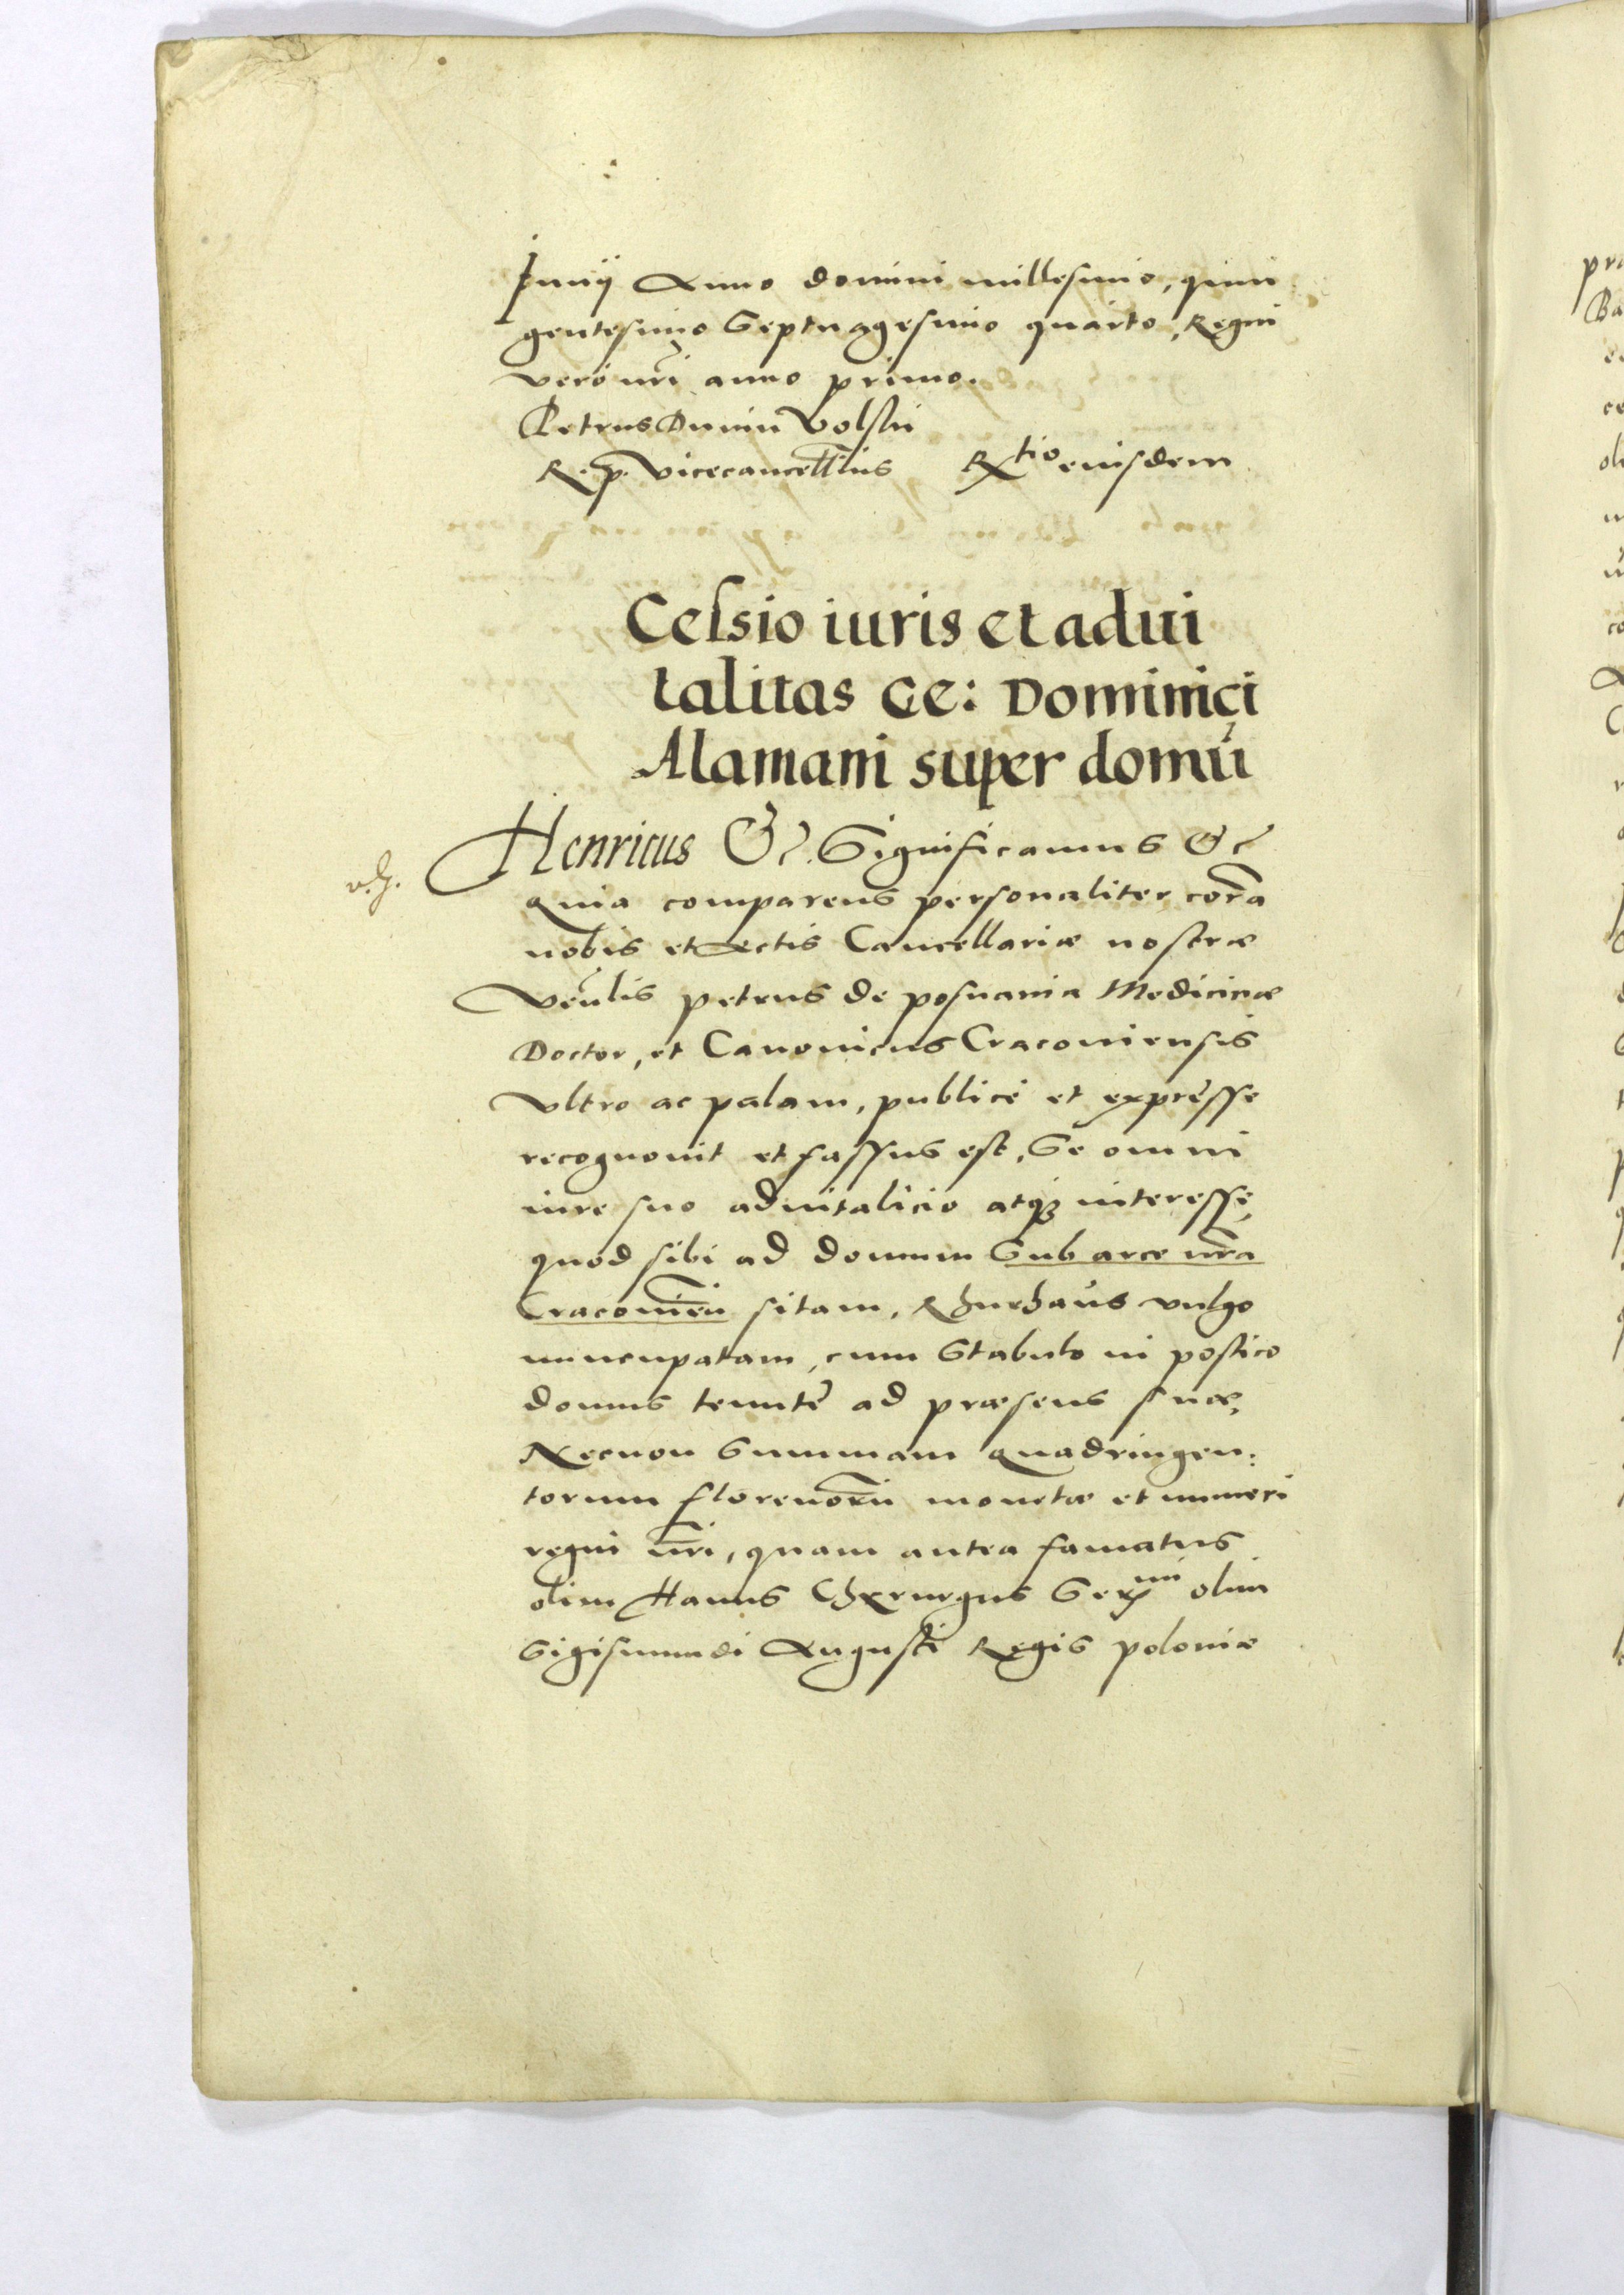 Junij Anno domini millesimo, quin
gentesimo Septuagesimo quarto, Regni
verò nr̃i anno primo.
Petrus Dunin Volski
R. p. Vicecancellrius R<sup>tio</sup> eiusdem
Cessio iuris et adui
talitas Ge: Dominici
Alamani super domũ
Henricus &c. Significamus &c
Quia comparens personaliter, corã
nobis et Actis Cancellariæ nostræ
Venñlis Petrus de Posnania Medicinæ
Doctor, et Canonicus Cracouiensis
Vltro ac palam, publicè et expressè
recognouit et fassus est, Se omni
iure suo aduitalicio atq3 interesse,
quod sibi ad domum Sub arce nr̃a
Cracouieñ sitam, Khurhaus vulgo
nuncupatam, cum Stabulo in postico
domus tenutẽ ad præsens suæ,
Necnon Summam Quadringen:
torum florenorũ monetæ et numeri
regni nr̃i, quam antea famatus
olim Hanus Chyrurgus Ser<sup>mi</sup> olim
Sigismundi Augusti Regis Poloniæ